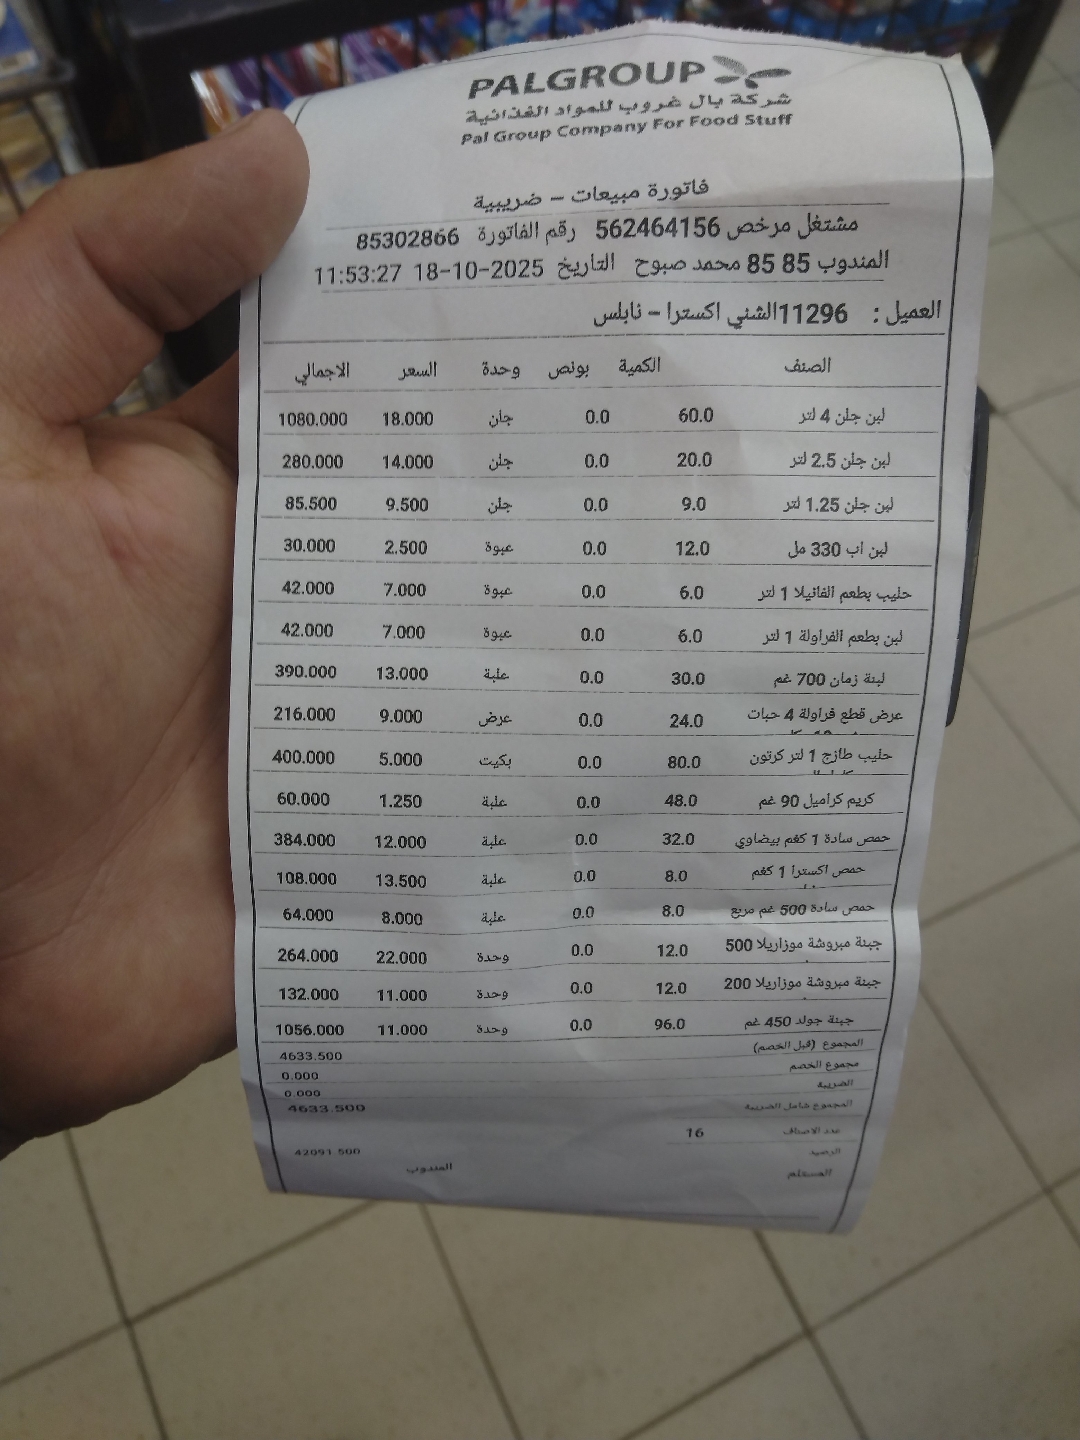 PALGROUP
شركة بال غروب للمواد الغذائية
Pal Group Company For Food Stuff
فاتورة مبيعات - ضريبية
مشتغل مرخص 562464156 رقم الفاتورة 85302866
المندوب 85 85 محمد صبوح التاريخ 18-10-2025 11:53:27
العميل : 11296الشني اكسترا - نابلس
الصنف الكمية بونص وحدة السعر الاجمالي
لبن جلن 4 لتر 60.0 0.0 جلن 18.000 1080.000
لبن جلن 2.5 لتر 20.0 0.0 جلن 14.000 280.000
لبن جلن 1.25 لتر 9.0 0.0 جلن 9.500 85.500
لبن اب 330 مل 12.0 0.0 عبوة 2.500 30.000
حليب بطعم الفانيلا 1 لتر 6.0 0.0 عبوة 7.000 42.000
لبن بطعم الفراولة 1 لتر 6.0 0.0 عبوة 7.000 42.000
لبنة زمان 700 غم 30.0 0.0 علبة 13.000 390.000
عرض قطع فراولة 4 حبات 24.0 0.0 عرض 9.000 216.000
حليب طازج 1 لتر كرتون 80.0 0.0 بكيت 5.000 400.000
كريم كراميل 90 غم 48.0 0.0 علبة 1.250 60.000
حمص سادة 1 كغم بيضاوي 32.0 0.0 علبة 12.000 384.000
حمص اكسترا 1 كغم 8.0 0.0 علبة 13.500 108.000
حمص سادة 500 غم مربع 8.0 0.0 علبة 8.000 64.000
جبنة مبروشة موزاريلا 500 12.0 0.0 وحدة 22.000 264.000
جبنة مبروشة موزاريلا 200 12.0 0.0 وحدة 11.000 132.000
جبنة جولد 450 غم 96.0 0.0 وحدة 11.000 1056.000
المجموع (قبل الخصم) 4633.500
مجموع الخصم 0.000
الضريبة 0.000
المجموع شامل الضريبة 4633.500
عدد الاصناف 16
الرصيد 42091.500
المستلم المندوب